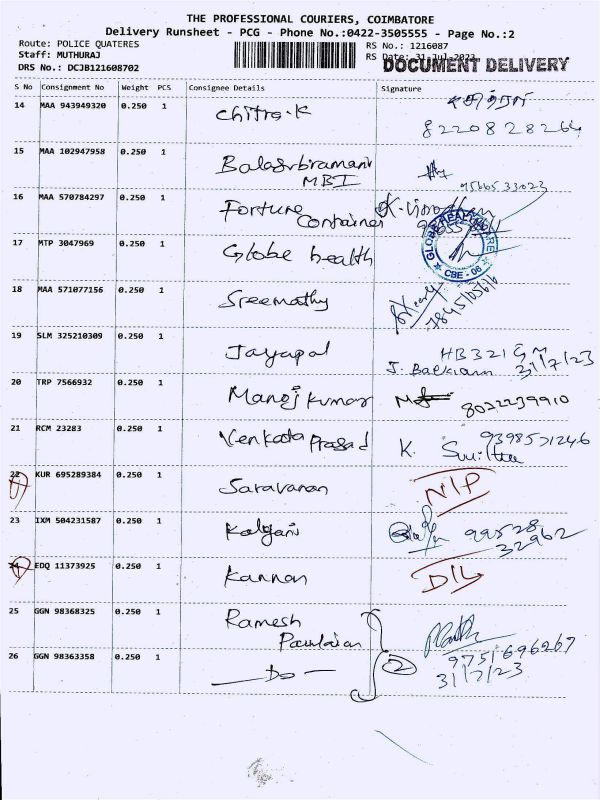 THE PROFESSIONAL COURIERS, COIMBATORE
Delivery Runsheet - PCG - Phone No.:0422-3505555 - Page No.:2
Route: POLICE QUATERES RS No.: 1216087
Staff: MUTHURAJ RS Date: 31-Jul-2023
DOCUMENT DELIVERY
DRS No.: DCJB121608702
S No Consignment No Weight PCS Consignee Details Signature
14 MAA 943949320 0.250 1 Chitra.K
8220828264
15 MAA 102947958 0.250 1 Balasubiramani
MBI
9566533023
16 MAA 570784297 0.250 1 Fortune
Container
17 MTP 3047969 0.250 1 Globe health
GLOBE HEALTHCARE
CBE - 06
18 MAA 571077156 0.250 1 Sreemathy
19 SLM 325210309 0.250 1 Jayapal HB321 GM
J. 31/7/23
20 TRP 7566932 0.250 1 Manoj kumar 8022239910
21 RCM 23283 0.250 1 Venkata Prasad K. 9398571246
22 KUR 695289384 0.250 1 Saravanan N/P
23 IXM 504231587 0.250 1 Kalyani 99528
32962
24 EDQ 11373925 0.250 1 Kannan D/L
25 GGN 98368325 0.250 1 Ramesh
9751696267
26 GGN 98363358 0.250 1 — Do — 2 31/7/23